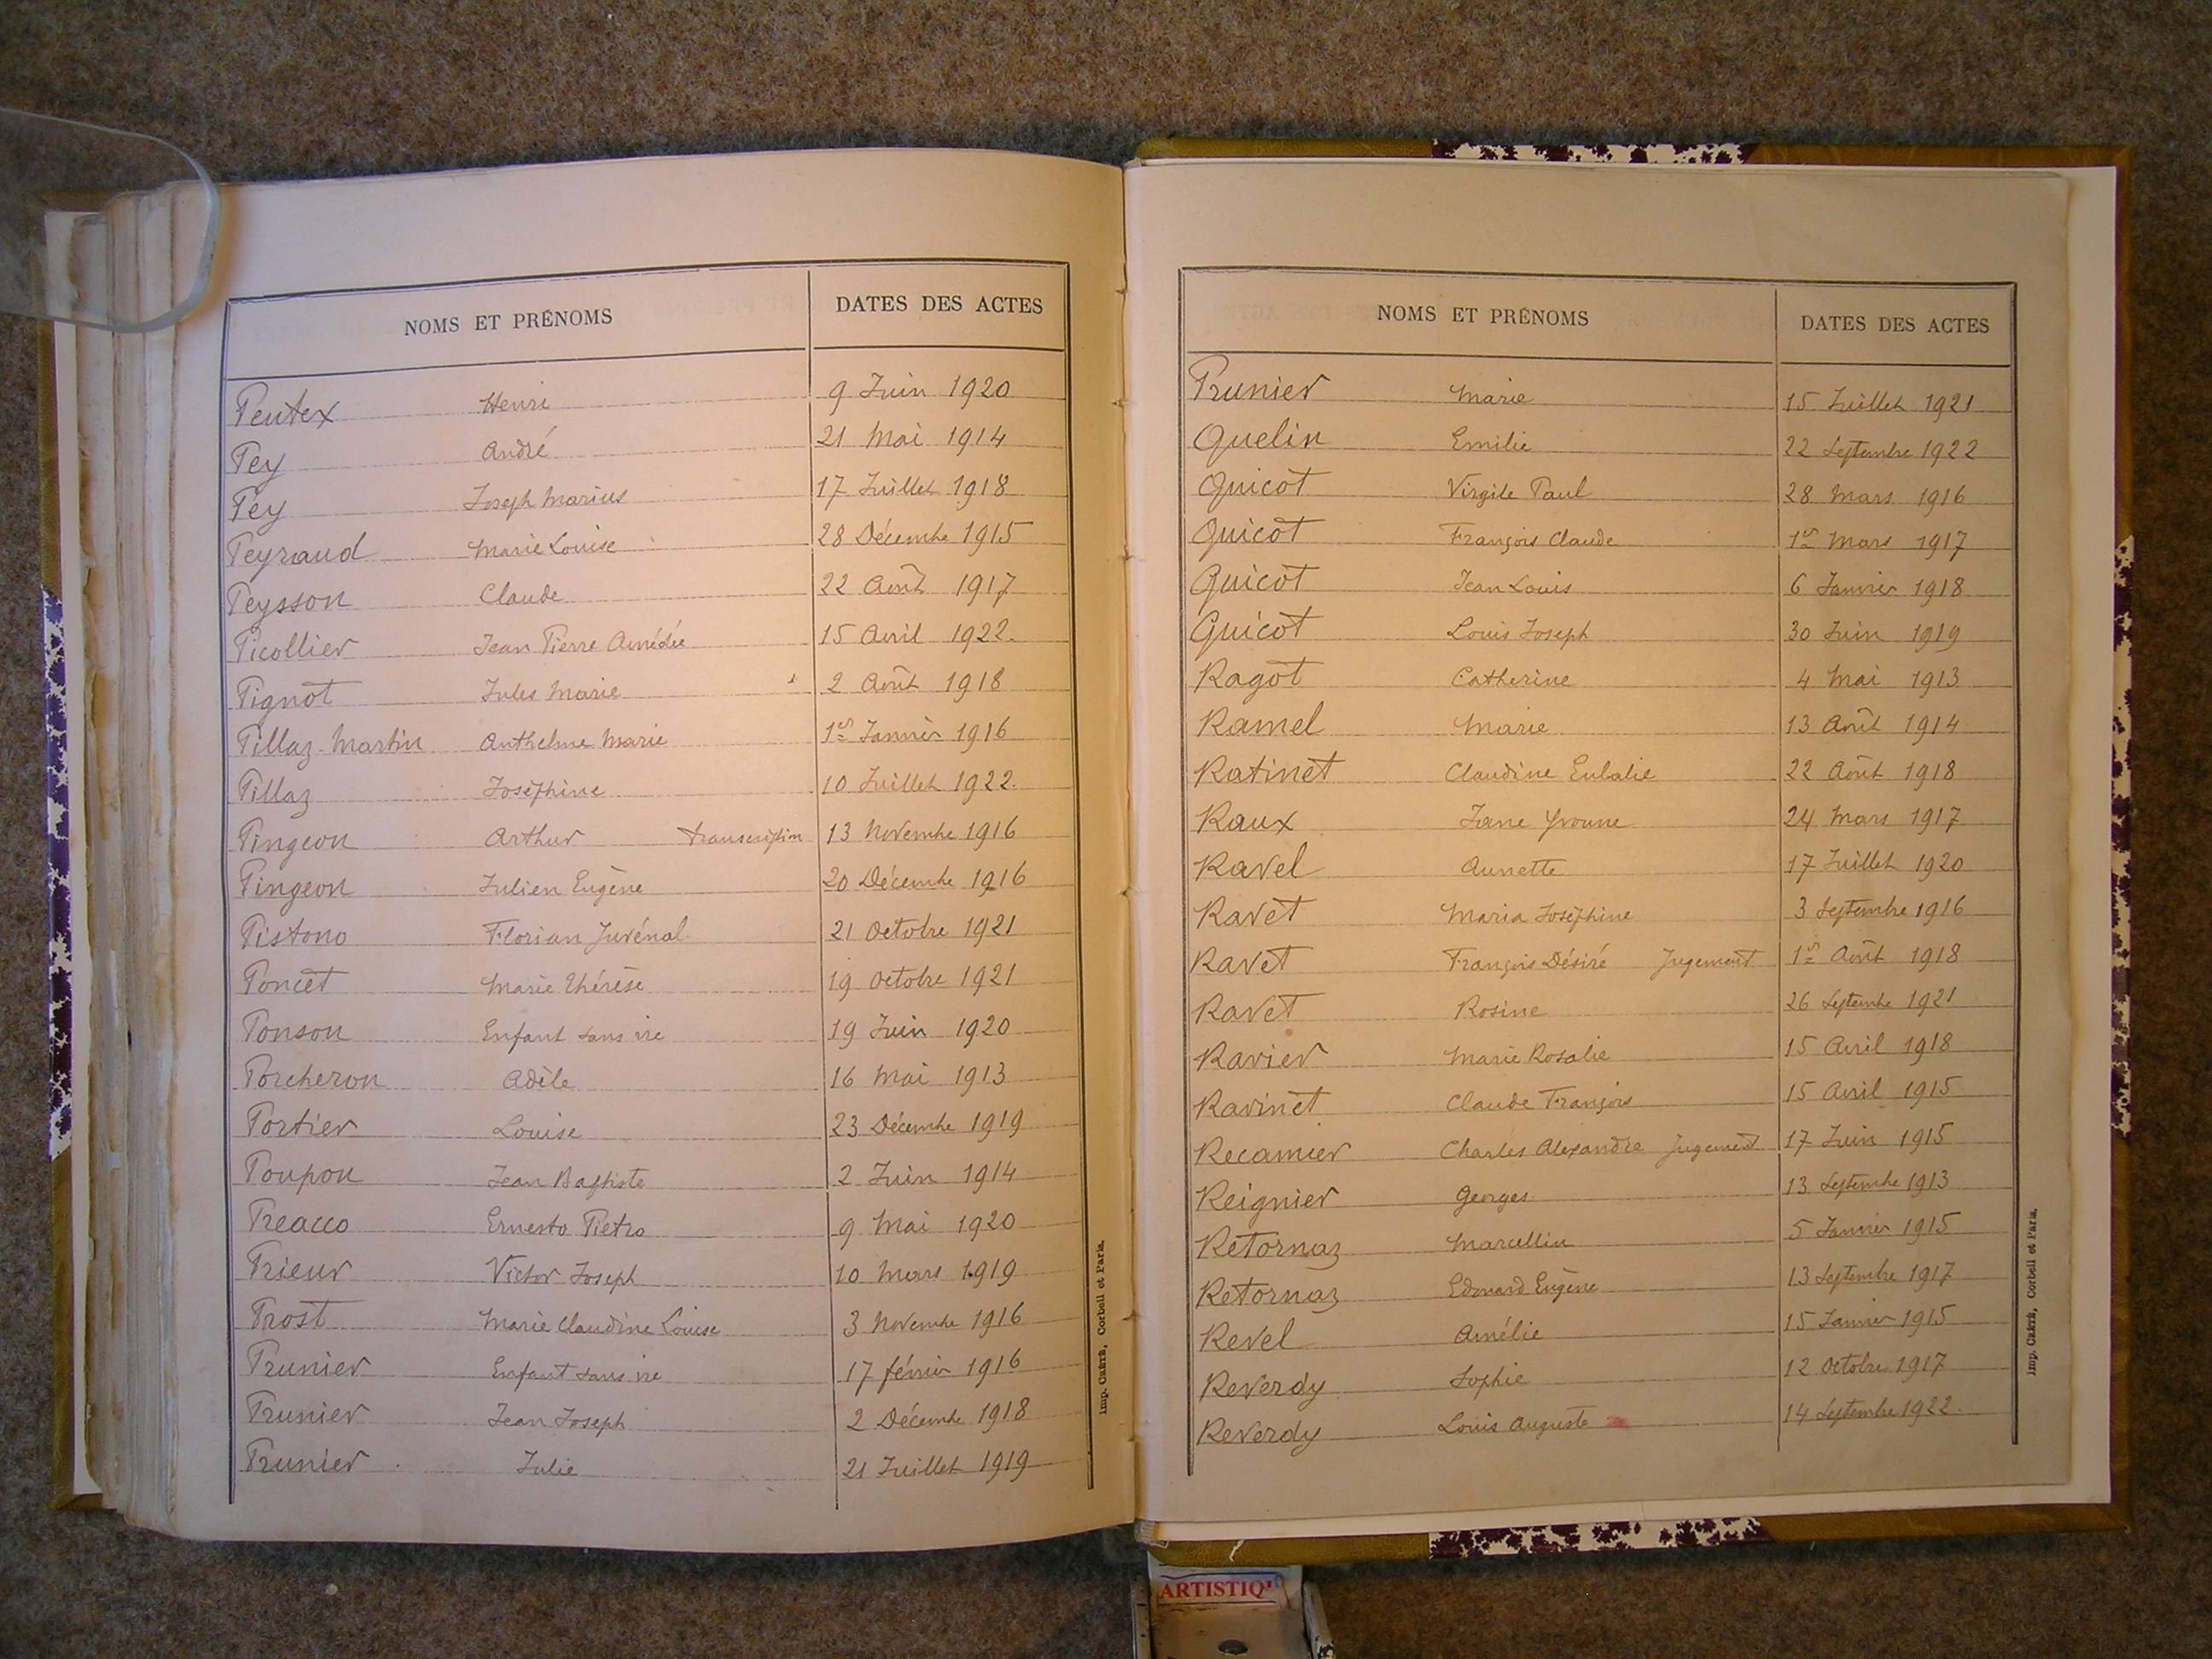 NOMS ET PRÉNOMS DATES DES ACTES
Peutex Henri 9 Juin 1920
Pey André 21 Mai 1914
Pey Joseph Marius 17 Juillet 1918
Peyraud Marie Louise 28 Décembre 1915
Peysson Claude 22 Août 1917
Picollier Jean Pierre Amédée 15 Avril 1922
Pignot Jules Marie 2 Août 1918
Pillaz-Martin Anthelme Marie 1er Janvier 1916
Pillaz Joséphine 10 Juillet 1922
Pingeon Arthur transcription 13 Novembre 1916
Pingeon Julien Eugène 20 Décembre 1916
Pistono Florian Juvénal 21 Octobre 1921
Poncet Marie Thérèse 19 Octobre 1921
Ponson Enfant sans vie 19 Juin 1920
Porcheron Adèle 16 Mai 1913
Portier Louise 23 Décembre 1919
Poupon Jean Baptiste 2 Juin 1914
Preacco Ernesto Pietro 9 Mai 1920
Prieur Victor Joseph 10 Mars 1919
Prost Marie Claudine Louise 3 Novembre 1916
Prunier Enfant sans vie 17 février 1916
Prunier Jean Joseph 2 Décembre 1918
Prunier Julie 21 Juillet 1919
Imp. CRÉTÉ, Corbeil et Paris.
NOMS ET PRÉNOMS DATES DES ACTES
Prunier Marie 15 Juillet 1921
Quelin Emilie 22 Septembre 1922
Quicot Virgile Paul 28 Mars 1916
Quicot François Claude 1er Mars 1917
Quicot Jean Louis 6 Janvier 1918
Quicot Louis Joseph 30 Juin 1919
Ragot Catherine 4 Mai 1913
Ramel Marie 13 Août 1914
Ratinet Claudine Eulalie 22 Août 1918
Raux Jane Yvonne 24 Mars 1917
Ravel Annette 17 Juillet 1920
Ravet Maria Joséphine 3 Septembre 1916
Ravet François Désiré Jugement 1er Août 1918
Ravet Rosine 26 Septembre 1921
Ravier Marie Rosalie 15 Avril 1918
Ravinet Claude François 15 Avril 1915
Recamier Charles Alexandre Jugement 17 Juin 1915
Reignier Georges 13 Septembre 1913
Retornaz Marcellin 5 Janvier 1915
Retornaz Edouard Eugène 13 Septembre 1917
Revel Amélie 15 Janvier 1915
Reverdy Sophie 12 Octobre 1917
Reverdy Louis Auguste 14 Septembre 1922
Imp. CRÉTÉ, Corbeil et Paris.
ARTISTIQ'